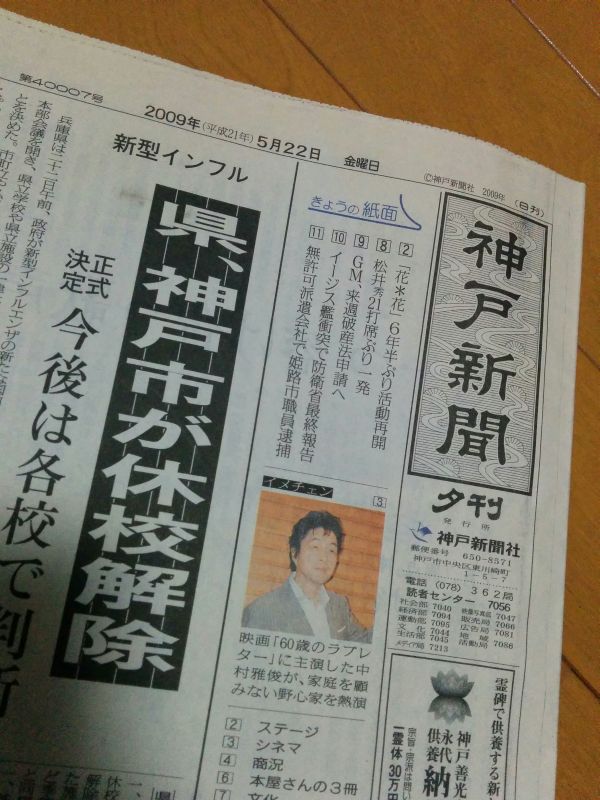 第40007号
2009年(平成21年)5月22日 金曜日
©神戸新聞社 2009年 (日刊)
神戸新聞
夕刊
発行所
神戸新聞社
郵便番号 650-8571
神戸市中央区東川崎町
1-5-7
電話(078)362局
読者センター 7056
社会部 7040
経済部 7094
運動部 7095
文化 7044
生活部 7145
メディア局 7213
映像写真部 7047
販売局 7066
広告局 7081
地域
活動局 7086
きょうの紙面
2 「花*花」6年半ぶり活動再開
8 松井秀21打席ぶり一発
9 GM、来週破産法申請へ
10 イージス艦衝突で防衛省最終報告
11 無許可派遣会社で姫路市職員逮捕
イメチェン
3
映画「60歳のラブレ
ター」に主演した中
村雅俊が、家庭を顧
みない野心家を熱演
2 ステージ
3 シネマ
4 商況
6 本屋さんの3冊
7 文化
新型インフル
県、神戸市が休校解除
正式
決定
今後は各校で判断
兵庫県は二十二日午前、政府が新型インフルエンザの新たな
本部会議を開き、県立学校や県立施設の一
とを決めた。市町立
霊碑で供養する新
神戸善光
永代
供養
納
宗旨・宗派は問い
一霊体30万円